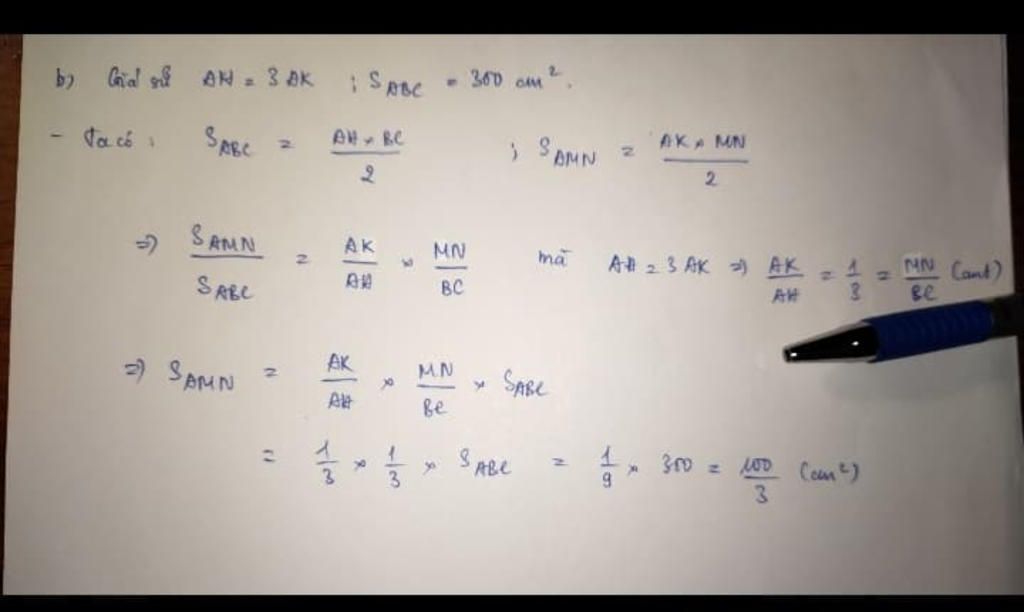 b) Giả sử AH = 3 AK ; S_ABC = 300 cm².
- Ta có : S_ABC = (AH × BC)/2 ; S_AMN = (AK × MN)/2
=> S_AMN/S_ABC = AK/AH × MN/BC mà AH = 3 AK => AK/AH = 1/3 = MN/BC (cmt)
=> S_AMN = AK/AH × MN/BC × S_ABC
= 1/3 × 1/3 × S_ABC = 1/9 × 300 = 100/3 (cm²)